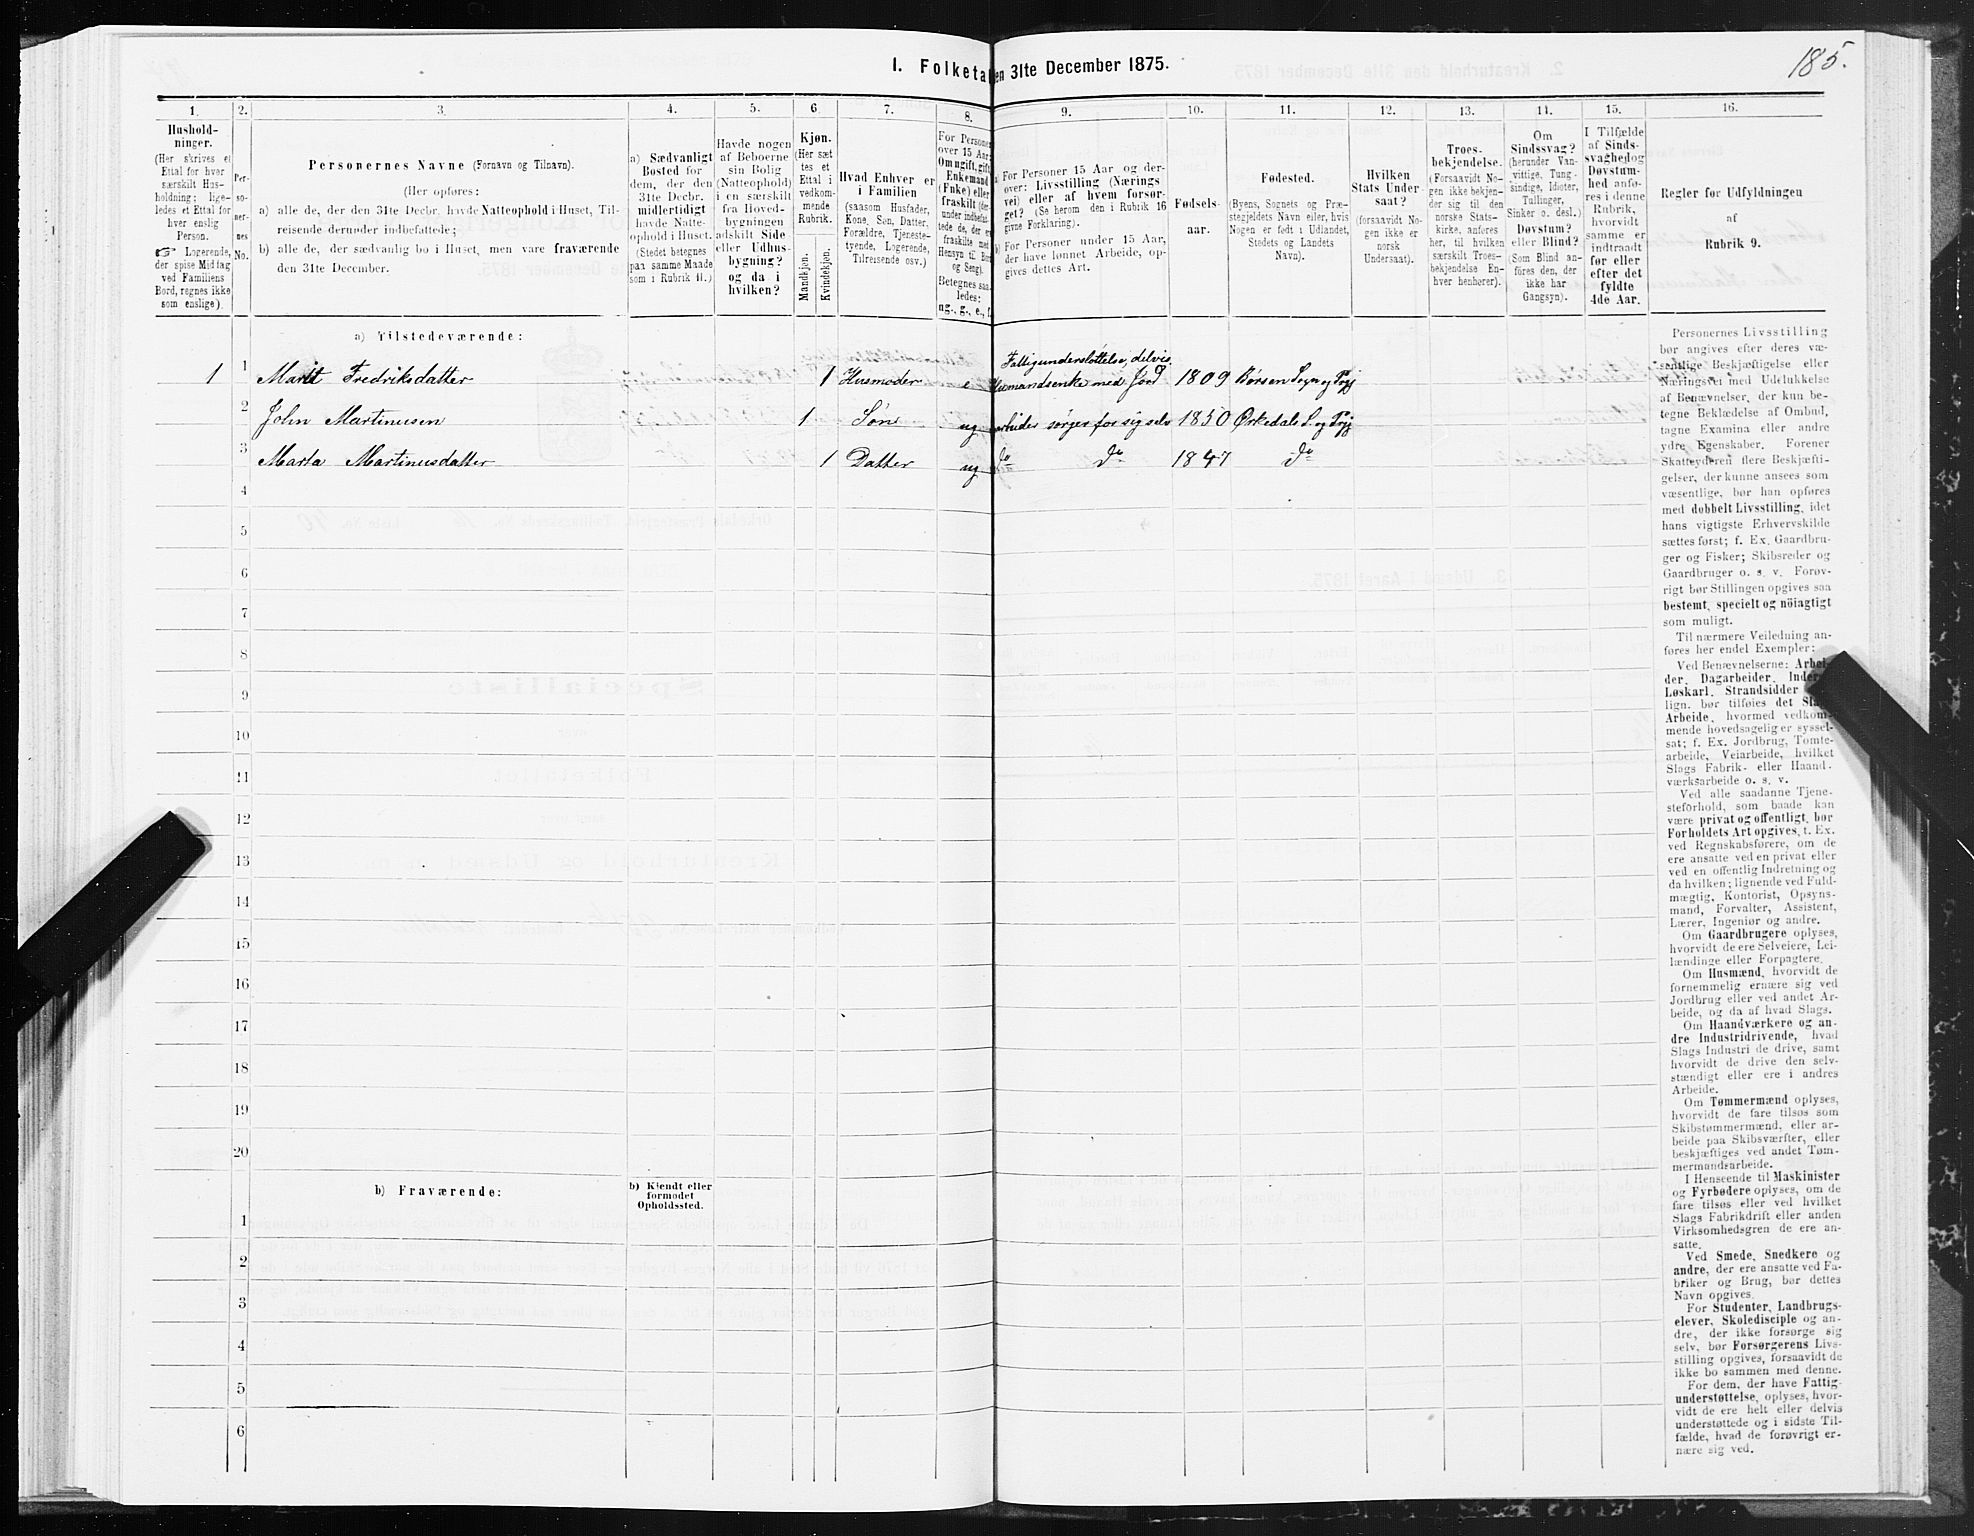 185.
1. Folketal den 31te December 1875.
1.
2.
3.
4.
5.
6
7.
8.
9.
10.
11.
12.
13.
14.
15.
16.
Hushold-
ninger.
(Her skrives et
Ettal for hver
særskilt Hus-
holdning; lige-
ledes et Ettal for
hver enslig
Person.
☞ Logerende,
der spise Middag
ved Familiens
Bord, regnes ikke
som enslige).
Per-
so-
ner-
nes
No.
Personernes Navne (Fornavn og Tilnavn).
(Her opføres:
a) alle de, der den 31te Decbr. havde Natteophold i Huset, Til-
reisende derunder indbefattede;
b) alle de, der sædvanlig bo i Huset, men vare fraværende
den 31te December.
a) Sædvanligt
Bosted for
dem, der den
31te Decbr.
midlertidigt
havde Natte-
ophold i Huset.
(Stedet betegnes
paa samme Maade
som i Rubrik 11.)
Havde nogen
af Beboerne
sin Bolig
(Natteophold)
i en særskilt
fra Hoved-
bygningen
adskilt Side
eller Udhus-
bygning?
og da i
hvilken?
Kjøn.
(Her sæt
tes et
Ettal i
vedkom-
mende
Rubrik.
Mandkjøn.
Kvindekjøn.
Hvad Enhver er
i Familien
(saasom Husfader,
Kone, Søn, Datter,
Forældre, Tjeneste-
tyende, Logerende,
Tilreisende osv.)
For Personer
over 15 Aar:
Om ugift, gift,
Enkemand
(Enke) eller
fraskilt (der-
under indbefat-
tede de, der er
fraskilte med
Hensyn til Bord
og Seng).
Betegnes saa-
ledes:
ug., g., e., f.
a) For Personer 15 Aar og der-
over: Livsstilling (Nærings
vei) eller af hvem forsør-
get? (Se herom den i Rubrik 16
givne Forklaring).
b) For Personer under 15 Aar,
der have lønnet Arbeide, op-
gives dettes Art.
Fødsels-
aar.
Fødested.
(Byens, Sognets og Præ-
stegjeldets Navn eller, hvis
Nogen er født i Udlandet,
Stedets og Landets
Navn).
Hvilken
Stats Under-
saat?
(forsaavidt No-
gen ikke er
norsk
Undersaat).
Troes-
bekjendelse.
(Forsaavidt No-
gen ikke bekjen-
der sig til den
norske Stats-
kirke, anføres
her, til hvilken
særskilt Troes-
bekjendelse En-
hver henhører).
Om
Sindssvag?
(herunder Van-
vittige, Tung-
sindige, Idioter,
Sinker o. desl.)
Døvstum?
eller Blind?
(Som Blind an-
føres den, der
ikke har
Gangsyn).
I Tilfælde
af Sinds-
svaghed og
Døvstum-
hed anfø-
res i denne
Rubrik,
hvorvidt
samme er
indtraadt
før eller
efter det
fyldte
4de Aar.
Regler for Udfyldningen
af
Rubrik 9.
a) Tilstedeværende:
1 1 Marit Fredriksdatter 1 Husmoder e Fattigunderstøttelse, delvis Husmandsenke med Jord 1809 Børsen Sogn og Prgj
2 John Martinusen 1 Søn ug arbeider sørger for sig selv 1850 Ørkedals S. og Prgj
3 Marta Martinusdatter 1 Datter ug do do 1847 do
4
5
6
7
8
9
10
11
12
13
14
15
16
17
18
19
20
b) Fraværende:
b) Kjendt eller
formodet
Opholdssted.
1
2
3
4
5
6
Personernes Livsstilling
bør angives efter deres væ-
sentlige Beskjæftigelse eller
Næringsvei med Udelukkelse
af Benævnelser, der kun be-
tegne Beklædelse af Ombud,
tagne Examina eller andre
ydre Egenskaber. Forener
Skatteyderen flere Beskjæfti-
gelser, der kunne ansees som
væsentlige, bør han opføres
med dobbelt Livsstilling, idet
hans vigtigste Erhvervskilde
sættes først; f. Ex. Gaardbru-
ger og Fisker; Skibsreder og
Gaardbruger o. s. v. Forøv-
rigt bør Stillingen opgives saa
bestemt, specielt og nöiagtigt
som muligt.
Til nærmere Veiledning an-
føres her endel Exempler:
Ved Benævnelserne: Arbei-
der, Dagarbeider, Inderst,
Løskarl, Strandsidder
lign. bør tilføies det Slags
Arbeide, hvormed vedkom-
mende hovedsagelig er syssel-
sat; f. Ex. Jordbrug, Tomte-
arbeide, Veiarbeide, hvilket
Slags Fabrik- eller Haand-
værksarbeide o. s. v.
Ved alle saadanne Tjene-
steforhold, som baade kan
være privat og offentligt, bør
Forholdets Art opgives, t. Ex.
ved Regnskabsførere, om de
ere ansatte ved en privat eller
ved en offentlig Indretning og
da hvilken; lignende ved Fuld-
mægtig, Kontorist, Opsyns-
mand, Forvalter, Assistent,
Lærer, Ingeniør og andre.
Om Gaardbrugere oplyses,
hvorvidt de ere Selveiere, Lei-
lændinge eller Forpagtere.
Om Husmænd, hvorvidt de
fornemmelig ernære sig ved
Jordbrug eller ved andet Ar-
beide, og da af hvad Slags.
Om Haandværkere og an-
dre Industridrivende, hvad
Slags Industri de drive, samt
hvorvidt de drive den selv-
stændigt eller ere i andres
Arbeide.
Om Tømmermænd oplyses,
hvorvidt de fare tilsøs som
Skibstømmermænd, eller ar-
beide paa Skibsværfter, eller
beskjæftiges ved andet Tøm-
mermandsarbeide.
I Henseende til Maskinister
og Fyrbødere oplyses, om de
fare tilsøs eller ved hvilket
Slags Fabrikdrift eller anden
Virksomhedsgren de ere an-
satte.
Ved Smede, Snedkere og
andre, der ere ansatte ved Fa-
briker og Brug, bør dettes
Navn opgives.
For Studenter, Landbrugs-
elever, Skoledisciple og an-
dre, der ikke forsørge sig
selv, bør Forsørgerens Livs-
stilling opgives, forsaavidt de
ikke bo sammen med denne.
For dem, der have Fattig-
understøttelse, oplyses, hvor-
vidt de ere helt eller delvis
understøttede og i sidste Til-
fælde, hvad de forøvrigt er-
nære sig ved.